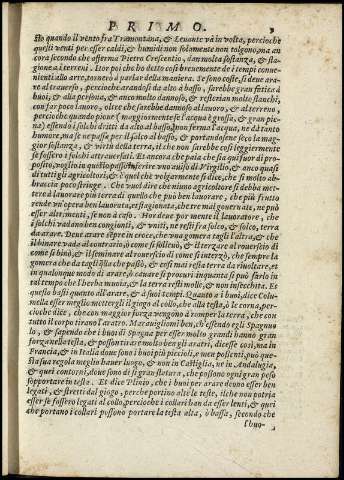 PRIMO. 9
sto quando il vento fra Tramontana, & Levante và in volta, percioche
questi venti per esser caldi, & humidi non solamente non tolgono, ma an
cora secondo che afferma Pietro Crescentio, dan molta sostanza, & sta
gione a i terreni. Hor poi che ho detto così brevemente de i tempi conue-
nienti all'arte, tornerò a parlar della maniera. Se sono coste, si deve ara-
re al traverso, percioche arandosi da alto à basso, sarebbe gran fatica à
buoi, & alla persona, & anco molto dannoso, & resterian molto stanchi,
con far poco lavoro, oltre che sarebbe dannoso al lavoro, & al terreno,
percioche quando piove (maggiormente se l'acqua è grossa, & gran pie
na) essendo i solchi dritti da alto al basso, non ferma l'acqua, ne dà tanto
humore, ma se ne passa per il solco al basso, & portandosene seco la mag-
gior sostanza, & virtù della terra, il che non sarebbe così leggiermente
se fossero i solchi attraversati. Et ancora che paia che sia qui fuor di pro-
posito, voglio in questo passo inserire uno auiso di Virgilio, & anco quasi
di tutti gli agricoltori, & è quel che volgarmente si dice, che chi molto ab-
braccia poco stringe. Che vuol dire che niuno agricoltore si debba met-
tere à lavorare più terra di quello che può ben lavorare, che più frutto
rende un'opera ben lavorata, et stagionata, che tre mal governate, ne può
esser altrimenti, se non à caso. Hor deue por mente il lavoratore, che
i solchi vadano ben congionti, & uniti, ne resti fra solco, & solco, terra
da arare. Deue arare sempre in croce, che una gomera tagli l'altra, & che
il binare vada al contrario, ò come si solleuò, & il terzare al rouerscio di
come si binò, & il seminare al rouerscio di come si interzò, che sempre la
gomera che dà tagli il già passato, & così mai resta terra da rivoltare, et
in qualunque modo di arare, ò cavare si procuri in quanto si può farlo in
tal tempo che l'herba muoia, & la terra resti molle, & non insecchita. Et
questo basti quanto all'arare, & à suoi tempi. Quanto a i buoi, dice Colu-
mella esser meglio mettergli il giogo al collo, che alla testa, ò le corna, per-
cioche dice, che con maggior forza vengono à romper la terra, che con
tutto il corpo tirano l'aratro. Maravigliomi ben, ch'essendo egli Spagnuo
lo, & sapendo che i buoi di Spagna per esser molto grandi hanno gran
forza nella testa, & possono tirare molto bene gli aratri, dicesse così, ma in
Francia, & in Italia dove sono i buoi più piccioli, e men possenti, può que-
sta sua regola meglio haver luogo, & non in Castiglia, ne in Andalugia,
& quei contorni, dove sono di sì gran statura, che possono ogni gran peso
sopportare in testa. Et dice Plinio, che i buoi per arare deono esser ben
legati, & stretti dal giogo, perche portino alte le teste, il che non potria
esser se fossero legati al collo, percioche i collari han da esser lenti, & quei
che portano i collari possono portare la testa alta, ò bassa, secondo che
i buo-